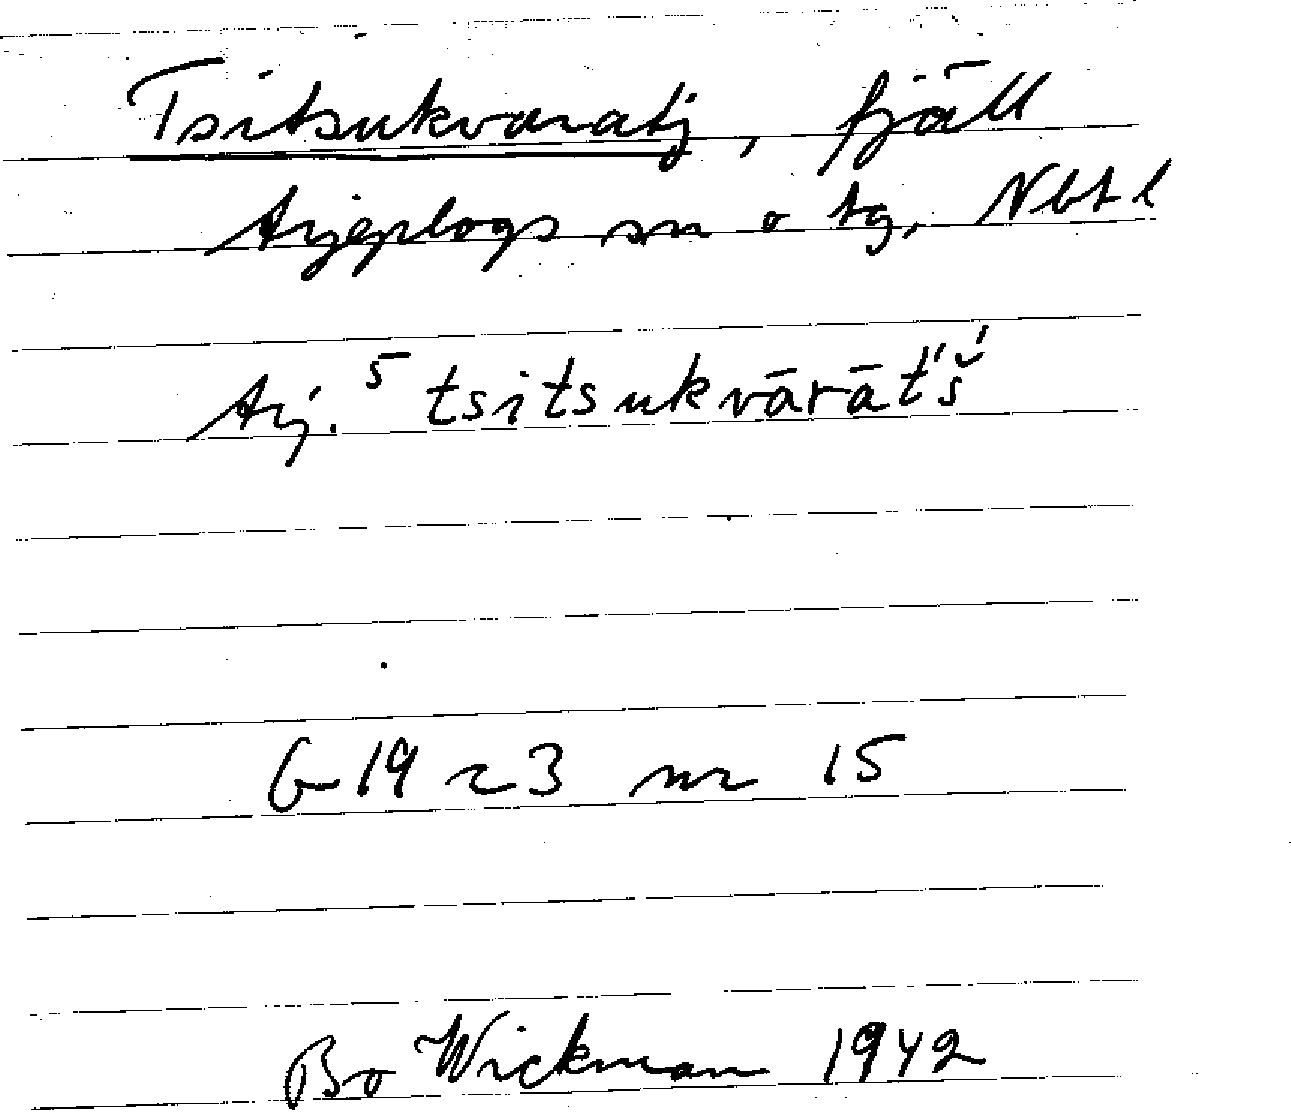 Tsitsukvaratj, fjäll
Arjeplogs sn o tg, Nbt l
Arj. 5 tsitsukvārāt́'š́
G 19 r 3 nr 15
Bo Wickman 1942